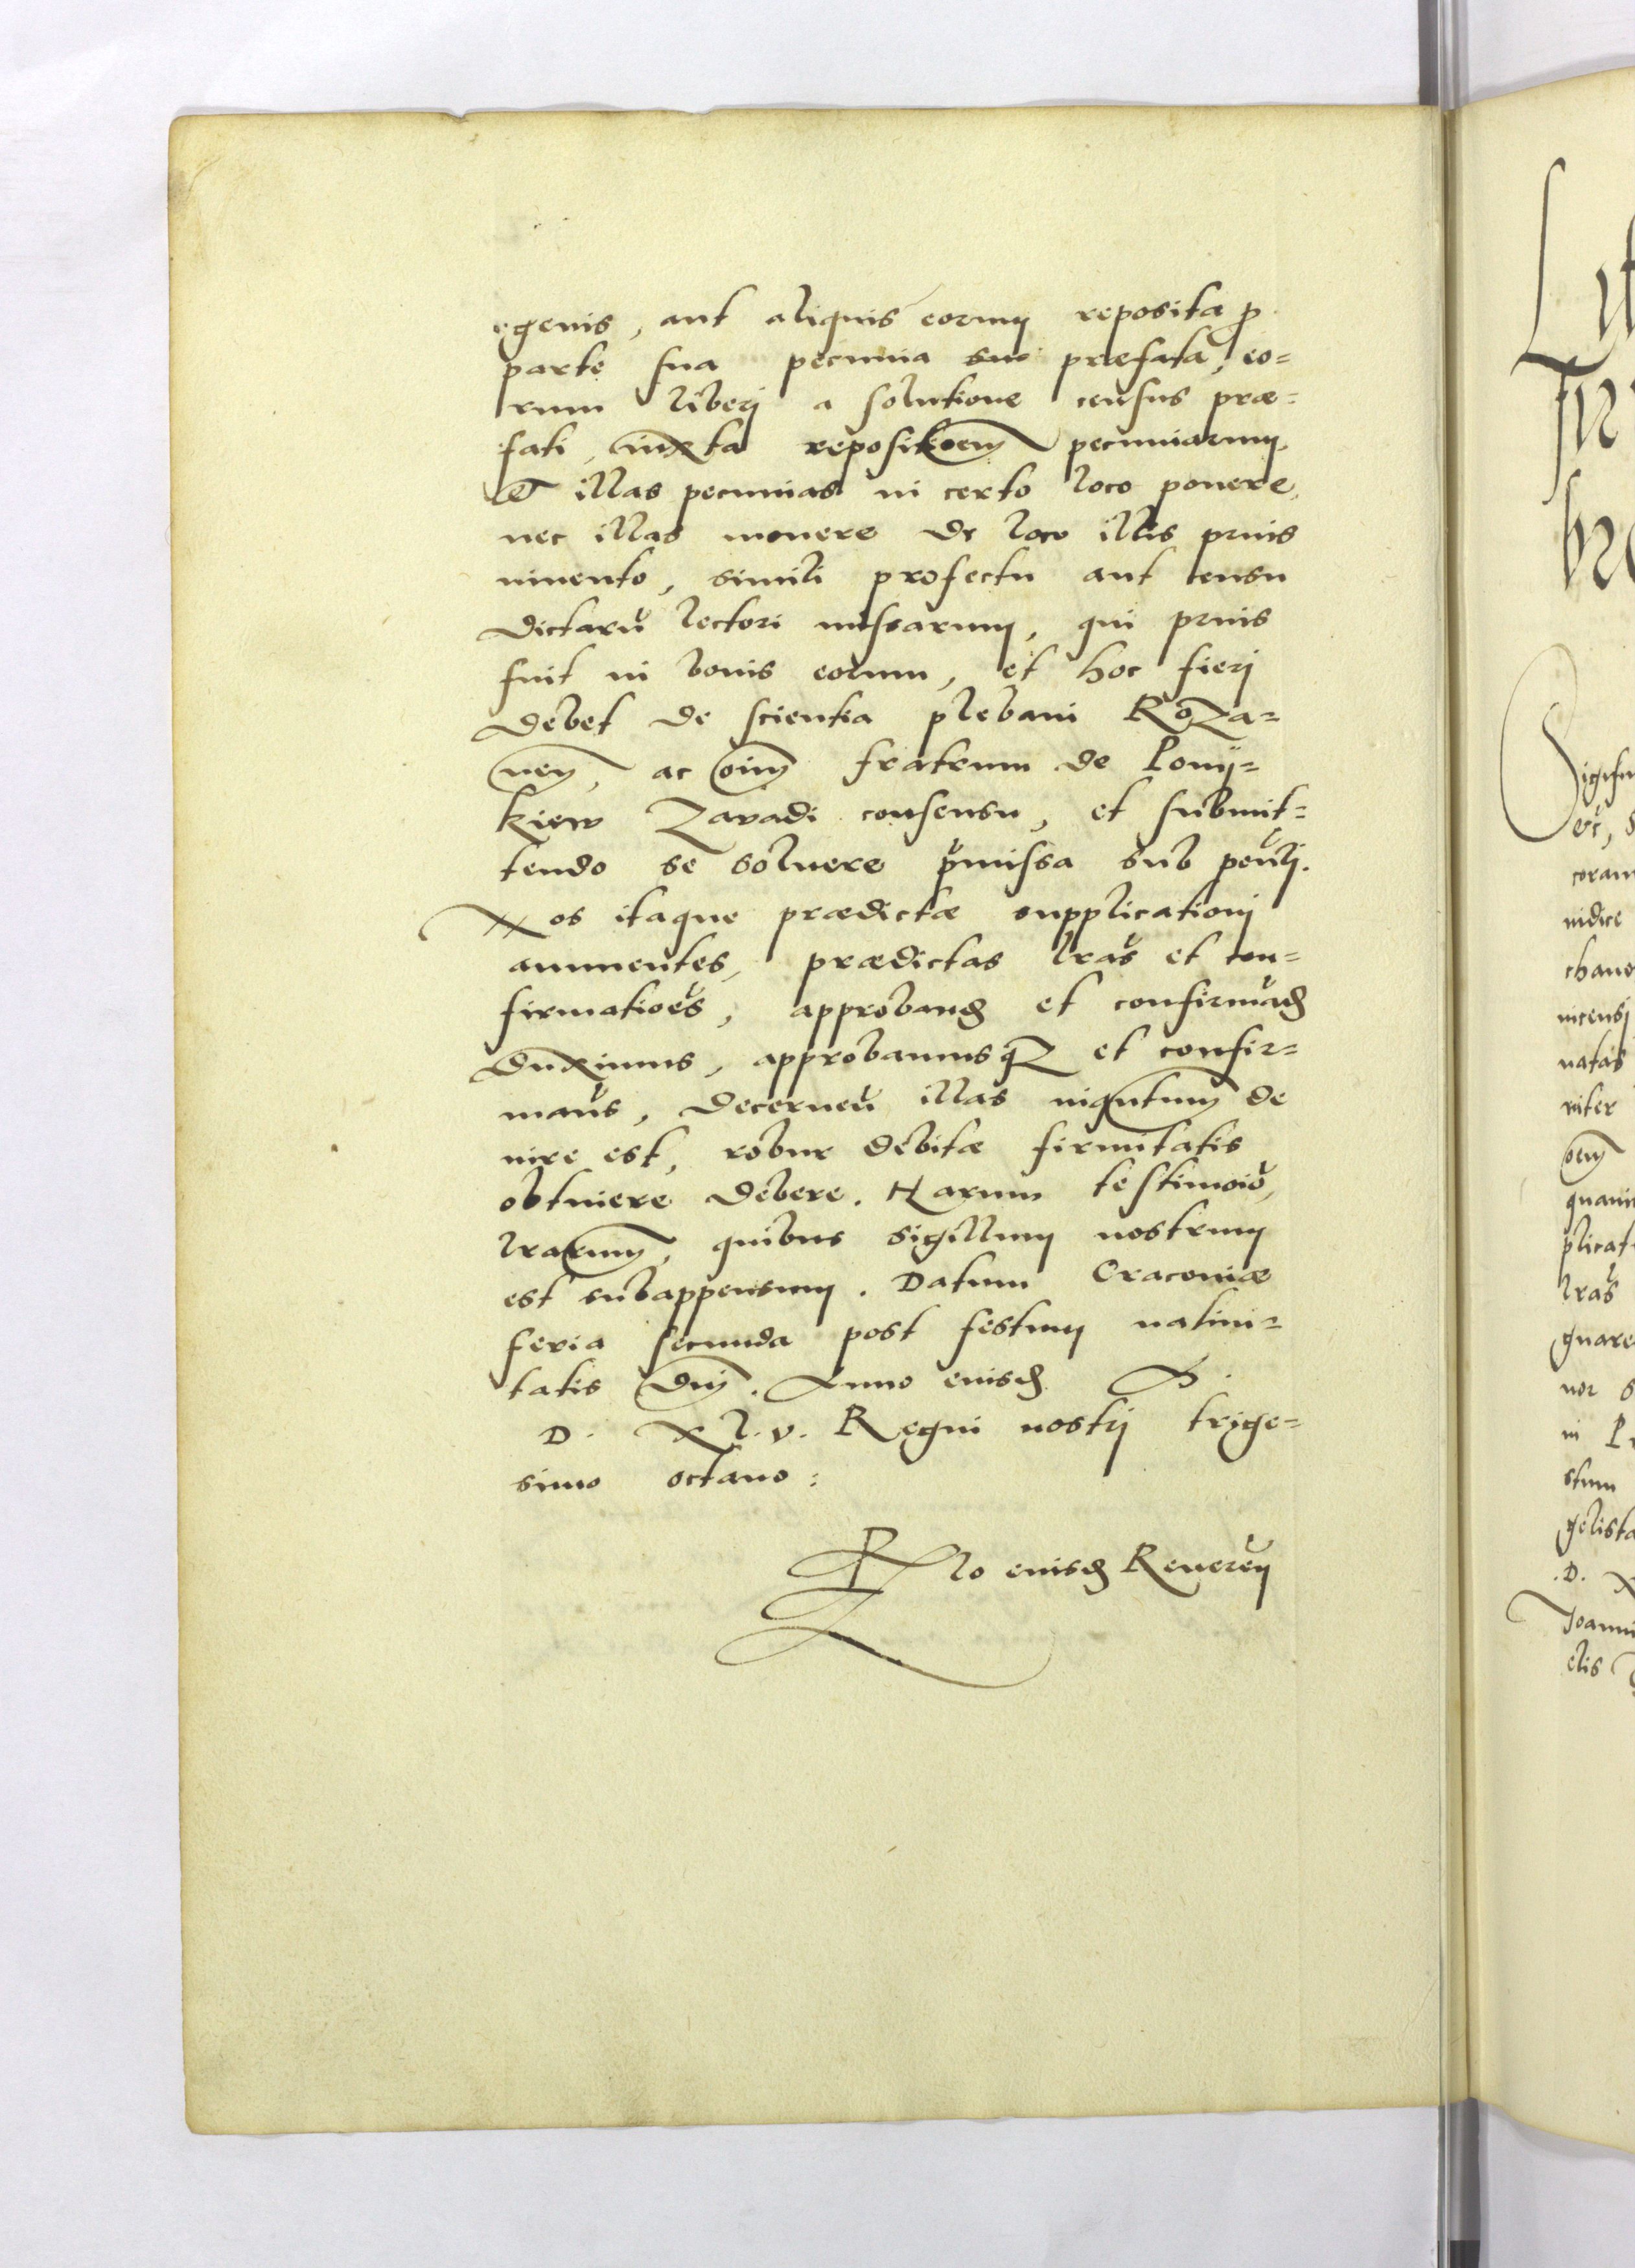 egenis, aut aliquis eorum reposita p
parte sua pecunia sue præfata, eo=
rum liberj a solutione census præ=
fati, iuxta repositioem pecuniarum,
Et illas pecunias in certo loco ponere,
nec illas mouere de loco illis prius
inuento, simili profectu aut censu
dictarū lectori missarum, qui prius
fuit in bonis eorum, et hoc fierj
debet de scientia plebani Roza=
neñ, ac oim fratrum de Pony=
kiew Zavadi consensu, et submit=
tendo se soluere p̄missa sub peūlj.
Nos itaque prædictæ supplicationj
annuentes, prædictas lras̄ et con=
firmatioēs, approband et confirmād
duximus, approbamusqz et confir=
mam̄s, decerneñ illas inquntum de
iure est, robur debitæ firmitatis
obtinere debere. Harum testimoiō,
lrarum, quibus sigillum nostrum
est subappensum. Datum Cracouiæ
feria secunda post festum natiui=
tatis Dnj. Anno eiusd. M.
D. Xl.v. Regni nostrj trige=
simo octauo:
Rlo eiusd Reuereñ
Sigism
etc, s
coram
iudice
chano
nicensi
natas
inter
oem
quani
plicat
lras̄
quare
nor s
in P
stum
gelista
.D. X
Joanni
elis